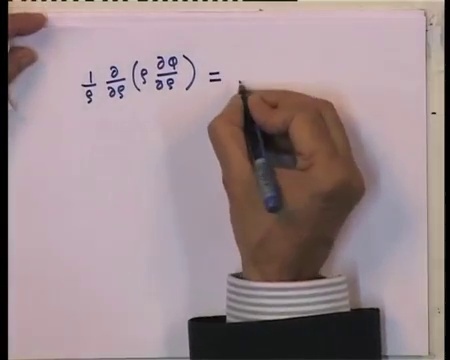 1/ρ ∂/∂ρ (ρ ∂Φ/∂ρ) =